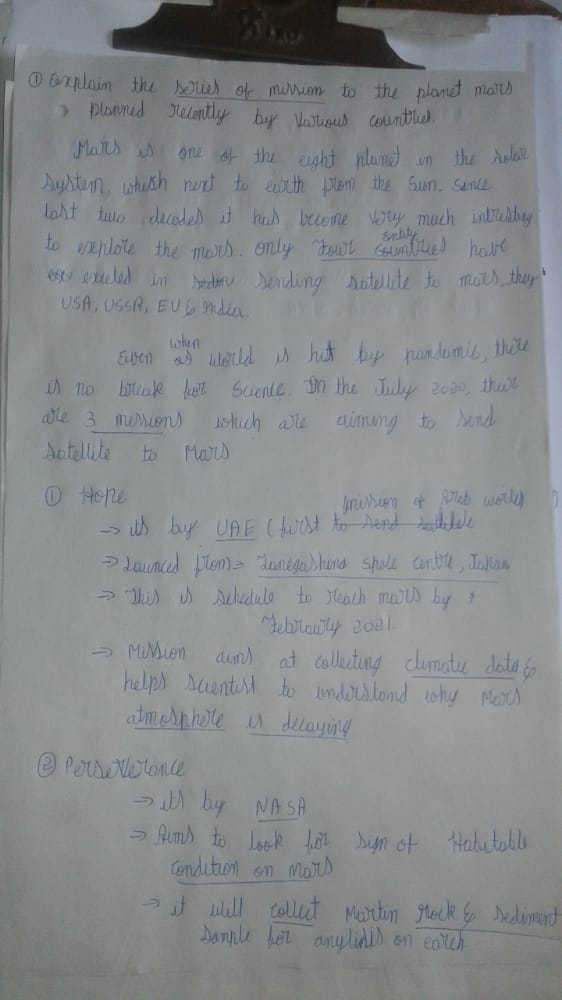 ① Explain the series of mission to the planet mars
planned recently by various countries.
Mars is one of the eight planet in the solar
system, which next to earth from the Sun. Since
last two decades it has become very much intresting
to explore the mars. only four entity countries have
exceled in sending satellite to mars, they
USA, USSR, EU & India.
Even when as world is hit by pandemic, there
is no break for Science. In the July 2020, their
are 3 missions which are aiming to send
satellite to Mars
① Hope
→ its by UAE (first to send satellite mission of Arab world)
→ Launced from → Tanegashima space centre, Japan
→ This is schedule to reach mars by
February 2021.
→ Mission aims at collecting climatic data &
helps scientist to understand why Mars
atmosphere is decaying
② Perseverance
→ its by NASA
→ Aims to look for sign of Habitable
condition on Mars
→ it will collect Martin rock & sediment
sample for anylisis on earth